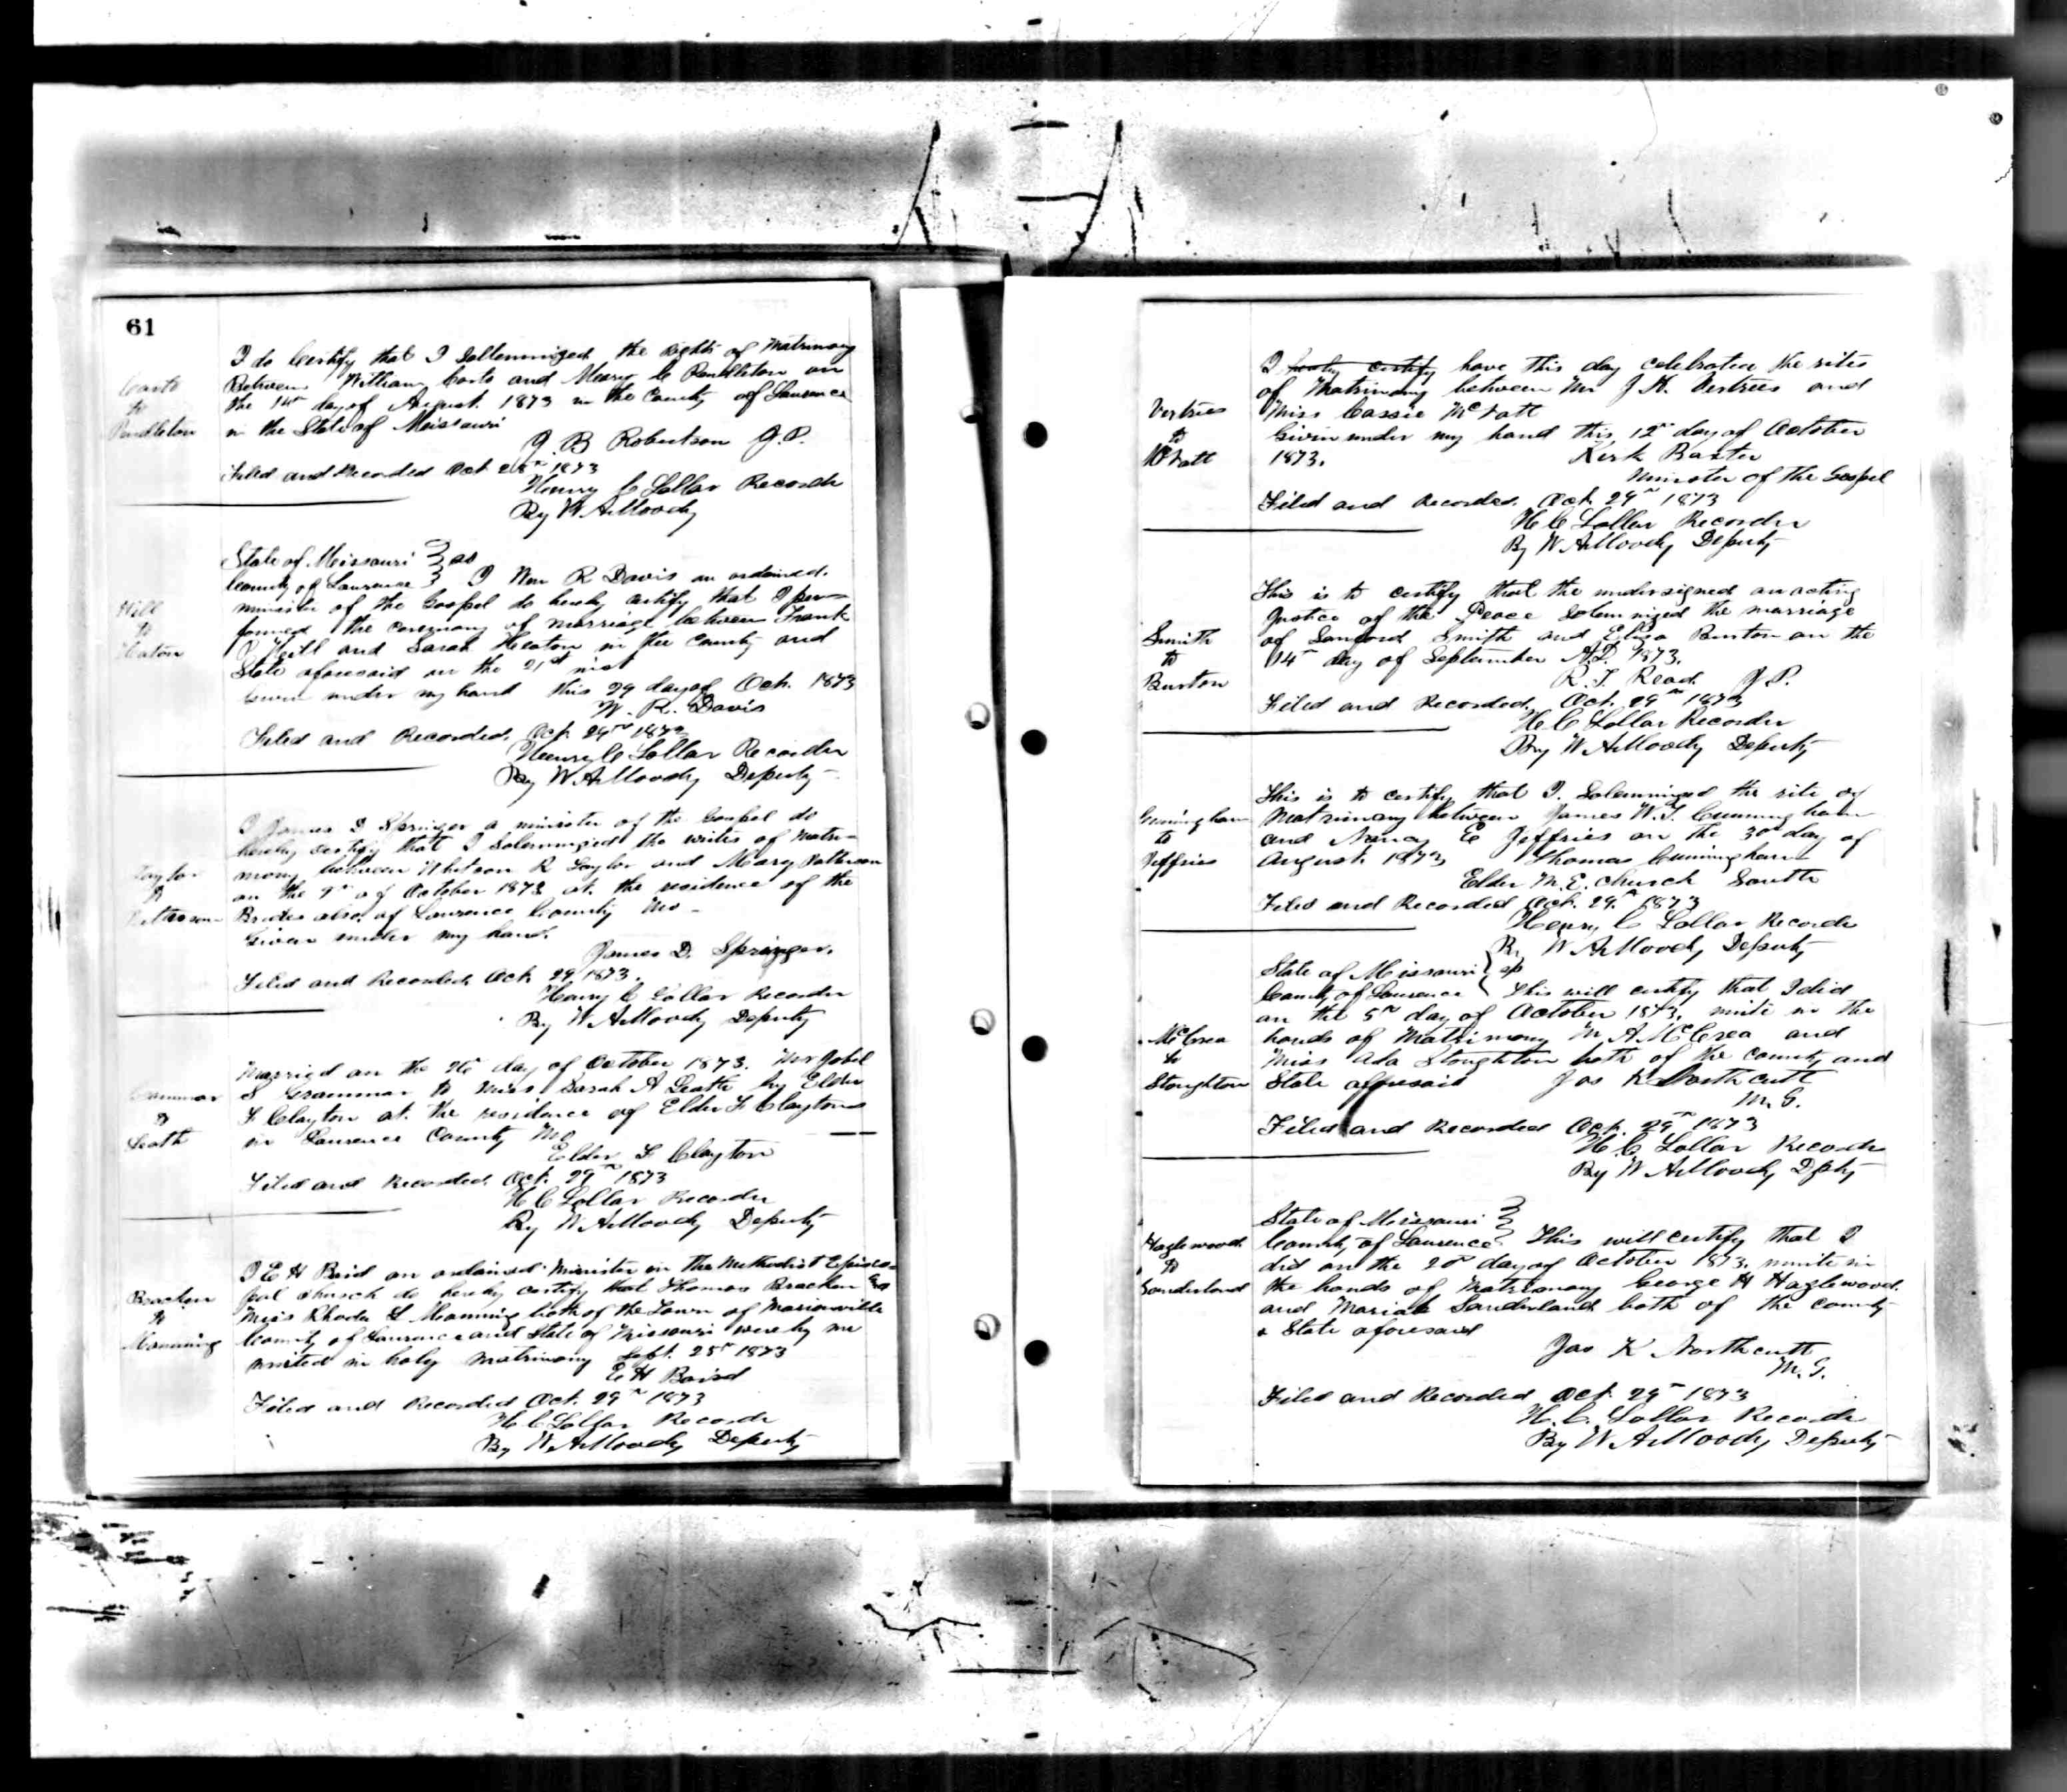 61
Coats
to
Pendleton
I do Certify that I Sollemnized the Rights of Matrimony
Between William Coats and Mary C Pendleton on
the 14th day of August 1873 in the County of Lawrence
in the State of Missouri
J. B Robertson J. P.
Filed and Recorded Oct 28th 1873
Henry C Lollar Recorder
By W A Moody
Hill
to
Heaton
State of Missouri } ss
County of Lawrence } I Wm R Davis an ordained
minister of the Gospel do hereby certify that I per-
formed the ceremony of marriage between Frank
P Hill and Sarah Heaton in the County and
State aforesaid on the 21st inst
Given under my hand this 29 day of Oct. 1873
W. R. Davis
Filed and Recorded Oct 29th 1873
Henry C Lollar Recorder
By W A Moody Deputy
Taylor
to
Patterson
I James D Springer a minister of the Gospel do
hereby certify that I Solemnized the writes of Matri-
mony between Whitson R Taylor and Mary Patterson
on the 9th of October 1873 at the residence of the
Brides also of Lawrence County Mo -
Given under my hand.
James D. Springer.
Filed and Recorded Oct 29 1873.
Henry C Lollar Recorder
By W A Moody Deputy
Grammar
to
Leath
Married on the 26 day of October 1873. Mr Jobel
S Grammar to Miss Sarah A Leath by Elder
F Clayton at the residence of Elder F Claytons
in Lawrence County Mo
Elder F Clayton
Filed and Recorded Oct. 29th 1873
H C Lollar Recorder
By W A Moody Deputy
Bracken
to
Manning
I E H Baird an ordained Minister in the Methodist Episco-
pal church do hereby certify that Thomas Bracken and
Miss Rhoda L Manning both of the Town of Marionville
County of Lawrence and State of Missouri were by me
united in holy matrimony Sept. 25th 1873
E H Baird
Filed and Recorded Oct. 29th 1873
H C Lollar Recorder
By W A Moody Deputy
Vertries
to
McNatt
I hereby certify have this day celebrated the rites
of Matrimony between Mr J H. Vertrees and
Miss Cassie McNatt
Given under my hand this 12th day of October
1873. Kirk Baxter
Minister of the Gospel
Filed and Recorded Oct. 29th 1873
H C Lollar Recorder
By W A Moody Deputy
Smith
to
Burton
This is to certify that the undersigned an acting
Justice of the Peace Solemnized the marriage
of Sanford Smith and Eliza Burton on the
14th day of September A.D. 1873.
R. T. Read J P.
Filed and Recorded. Oct. 29th 1873
H C Lollar Recorder
By W A Moody Deputy
Cunningham
to
Jeffries
This is to certify that I Solemnized the rite of
Matrimony between James W. T. Cunningham
and Nancy E Jeffries on the 30th day of
August 1873 Thomas Cunningham
Elder M. E. Church South
Filed and Recorded Oct. 29th 1873
Henry C Lollar Recorder
By W A Moody Deputy
McCrea
to
Stoughton
State of Missouri } ss
County of Lawrence } This will certify that I did
on the 5th day of October 1873. unite in the
bonds of Matrimony M. A McCrea and
Miss Ada Stoughton both of the county and
State aforesaid Jas K Northcutt
M. G.
Filed and Recorded Oct. 29th 1873
H. C Lollar Recorder
By W A Moody Dpty
Hazlewood
to
Sanderland
State of Missouri }
County of Lawrence } This will certify that I
did on the 20th day of October 1873. unite in
the bonds of Matrimony George H Hazlewood
and Mariah Sanderland both of the county
& State aforesaid
Jas K Northcutt
M. G.
Filed and Recorded Oct. 29th 1873
H. C. Lollar Recorder
By W A Moody Deputy